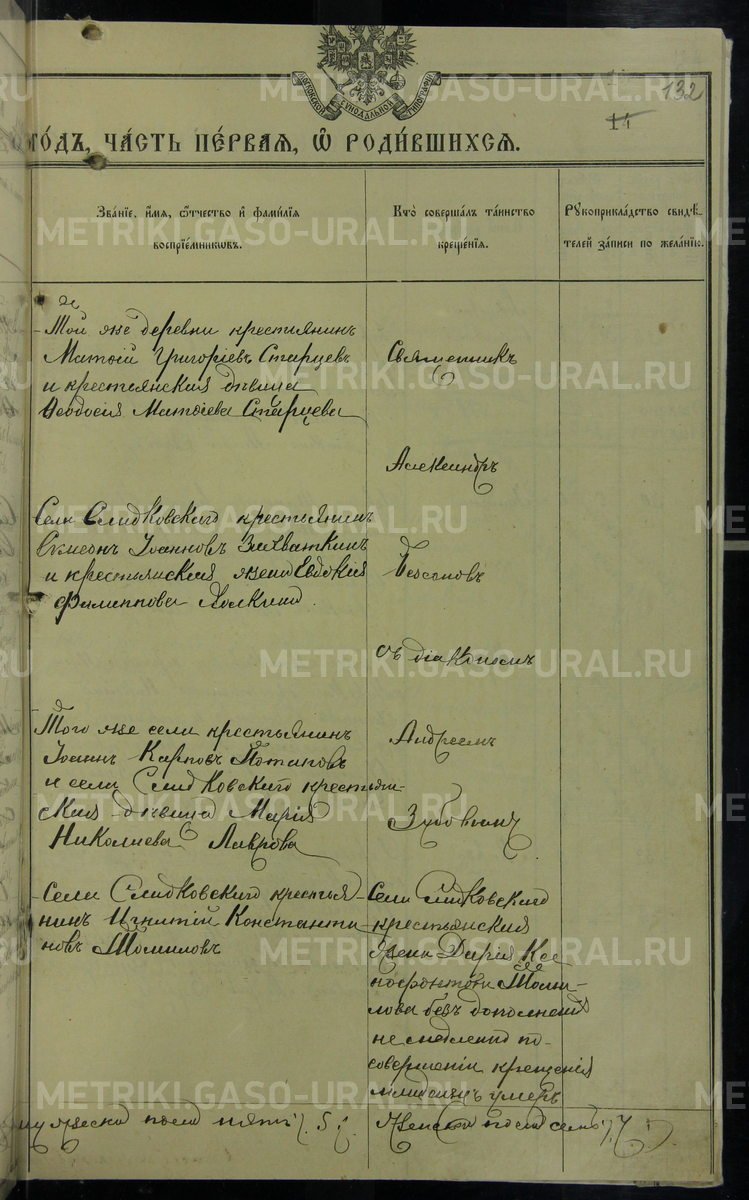 132
14
ГО́ДЪ, ЧА́СТЬ ПЕ́РВАЯ, Ѡ҆ РОДИ́ВШИХСЯ.
Зва́ніе, и҆́мя, ѻ҆́тчество и҆ фами́лїя
воспрїе́мниковъ.
Кто̀ соверша́лъ та́инство
креще́нїя.
Рукоприкла́дство свидѣ́-
телей за́писи по жела́нїю.
Той же деревни крестьянинъ
Матѳій Григоріевъ Старцевъ
и крестьянская дѣвица
Ѳеодосія Матѳіева Старцева
Священникъ
Александръ
Села Сладковскаго крестьянинъ
Симеонъ Іоанновъ Захваткинъ
и крестьянская жена Евдокія
Филиппова
съ діакономъ
Того же села крестьянинъ
Іоаннъ Карповъ Потаповъ
и села Сладковскаго крестьян-
ская дѣвица Марія
Николаева Лаврова
Андреемъ
Зубовымъ
Села Сладковскаго крестья-
нинъ Игнатій Константи
новъ Томиловъ
Села Сладковскаго
крестьянская
жена Дарія Ксе
нофонтова Томи-
лова безъ дополненія
не медленно по
совершеніи крещенія
младенецъ умеръ
мужеска пола пять /. 5 /.
женска пола семь /. 7 /.
METRIKI.GASO-URAL.RU